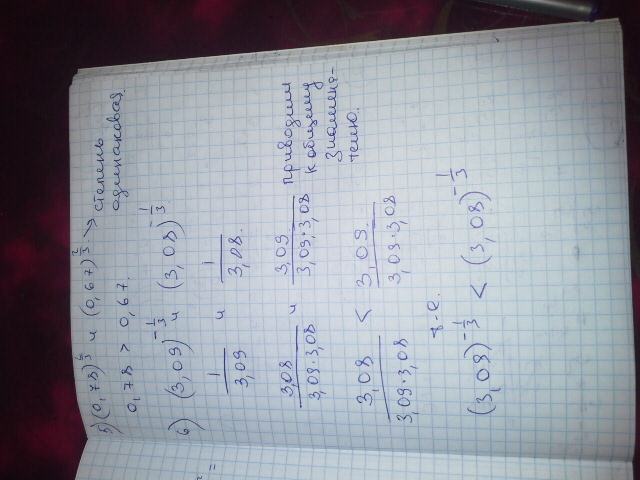 5) (0,78)^(2/3) и (0,67)^(2/3) → степень
одинаковая.
0,78 > 0,67.
6) (3,09)^(-1/3) и (3,08)^(-1/3)
1/3,09 и 1/3,08.
3,08/(3,09·3,08) и 3,09/(3,09·3,08) приводим
к общему
знамена-
телю.
3,08/(3,09·3,08) < 3,09/(3,09·3,08)
т-е.
(3,08)^(-1/3) < (3,08)^(-1/3)